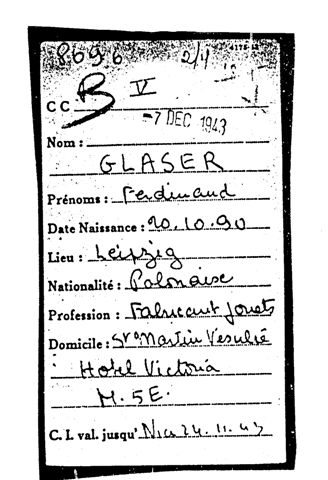 8696 2/4
C C B V
-7 DEC 1943
Nom :
GLASER
Prénoms : Ferdinand
Date Naissance : 20.10.90
Lieu : Leipzig
Nationalité : Polonaise
Profession : Fabricant Jouets
Domicile : St Martin Vesubié
Hotel Victoria
M. 5E.
C. I. val. jusqu' Nice 24.11.43